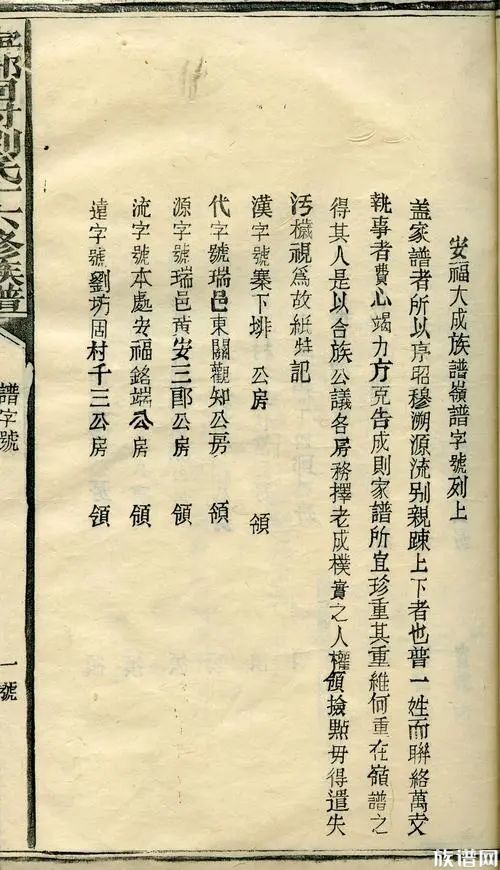 安福大成族譜嶺譜字號列上
盖家譜者所以序昭穆溯源流别親踈上下者也普一姓而聯絡萬支
執事者費心竭力方克告成則家譜所宜珍重其重維何重在嶺譜之
得其人是以合族公議各房務擇老成樸實之人權領撿㸃毋得遣失
汚穢視爲故紙特記
漢字號寨下排 公房 領
代字號瑞邑東關觀知公房 領
源字號瑞邑黄安三郎公房 領
流字號本處安福銘端公房 領
遠字號劉坊固村千三公房 領
寧都固村劉氏十六修族譜
譜字號
一號
族谱网